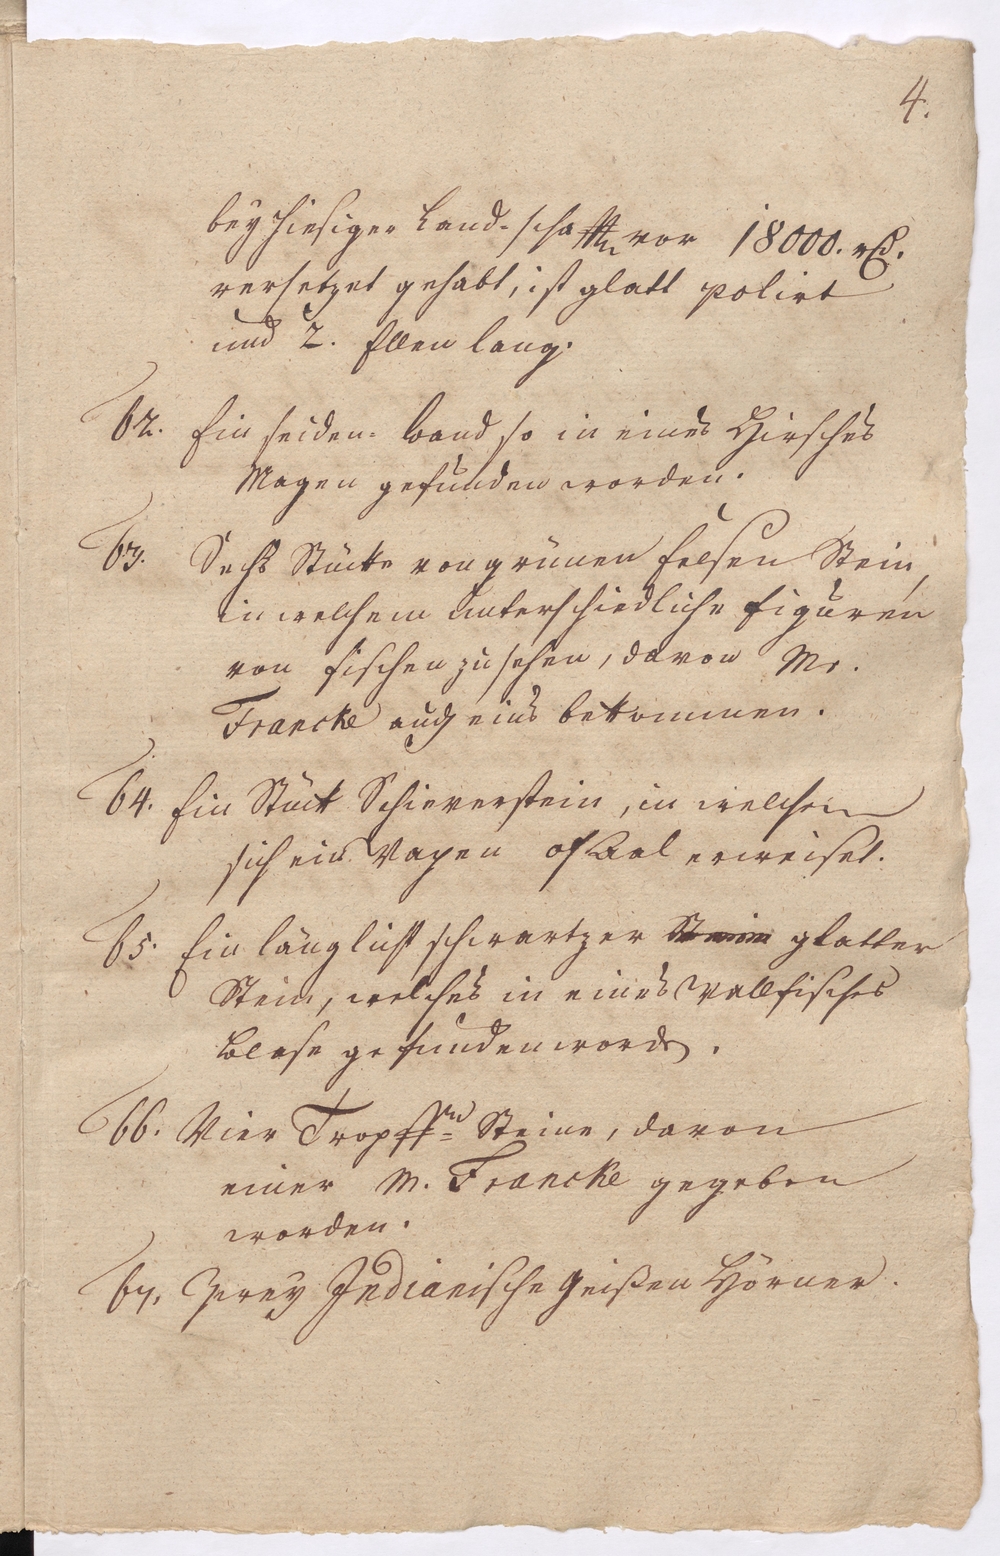 4.
bey hiesiger Land-schafft vor 18000. rthl.
versetzet gehabt, ist glatt polirt
und 2. Ellen lang.
62. Ein seiden- band so in eines Hirsches
Magen gefunden worden.
63. Sechs Stücke von grünen felsen Stein,
in welchem unterschiedliche figuren
von fischen zu sehen, davon Mr.
Francke auch eins bekommen.
64. Ein Stück Schieverstein, in welchen
sich ein Wapen erweiset.
65. Ein länglicht schwartzer Stein glatter
Stein, welches in eines Wallfisches
blase gefunden worden.
66. Vier Tropff Steine, davon
einer M. Francke gegeben
worden.
67. Zwey Indianische Geißen Hörner.